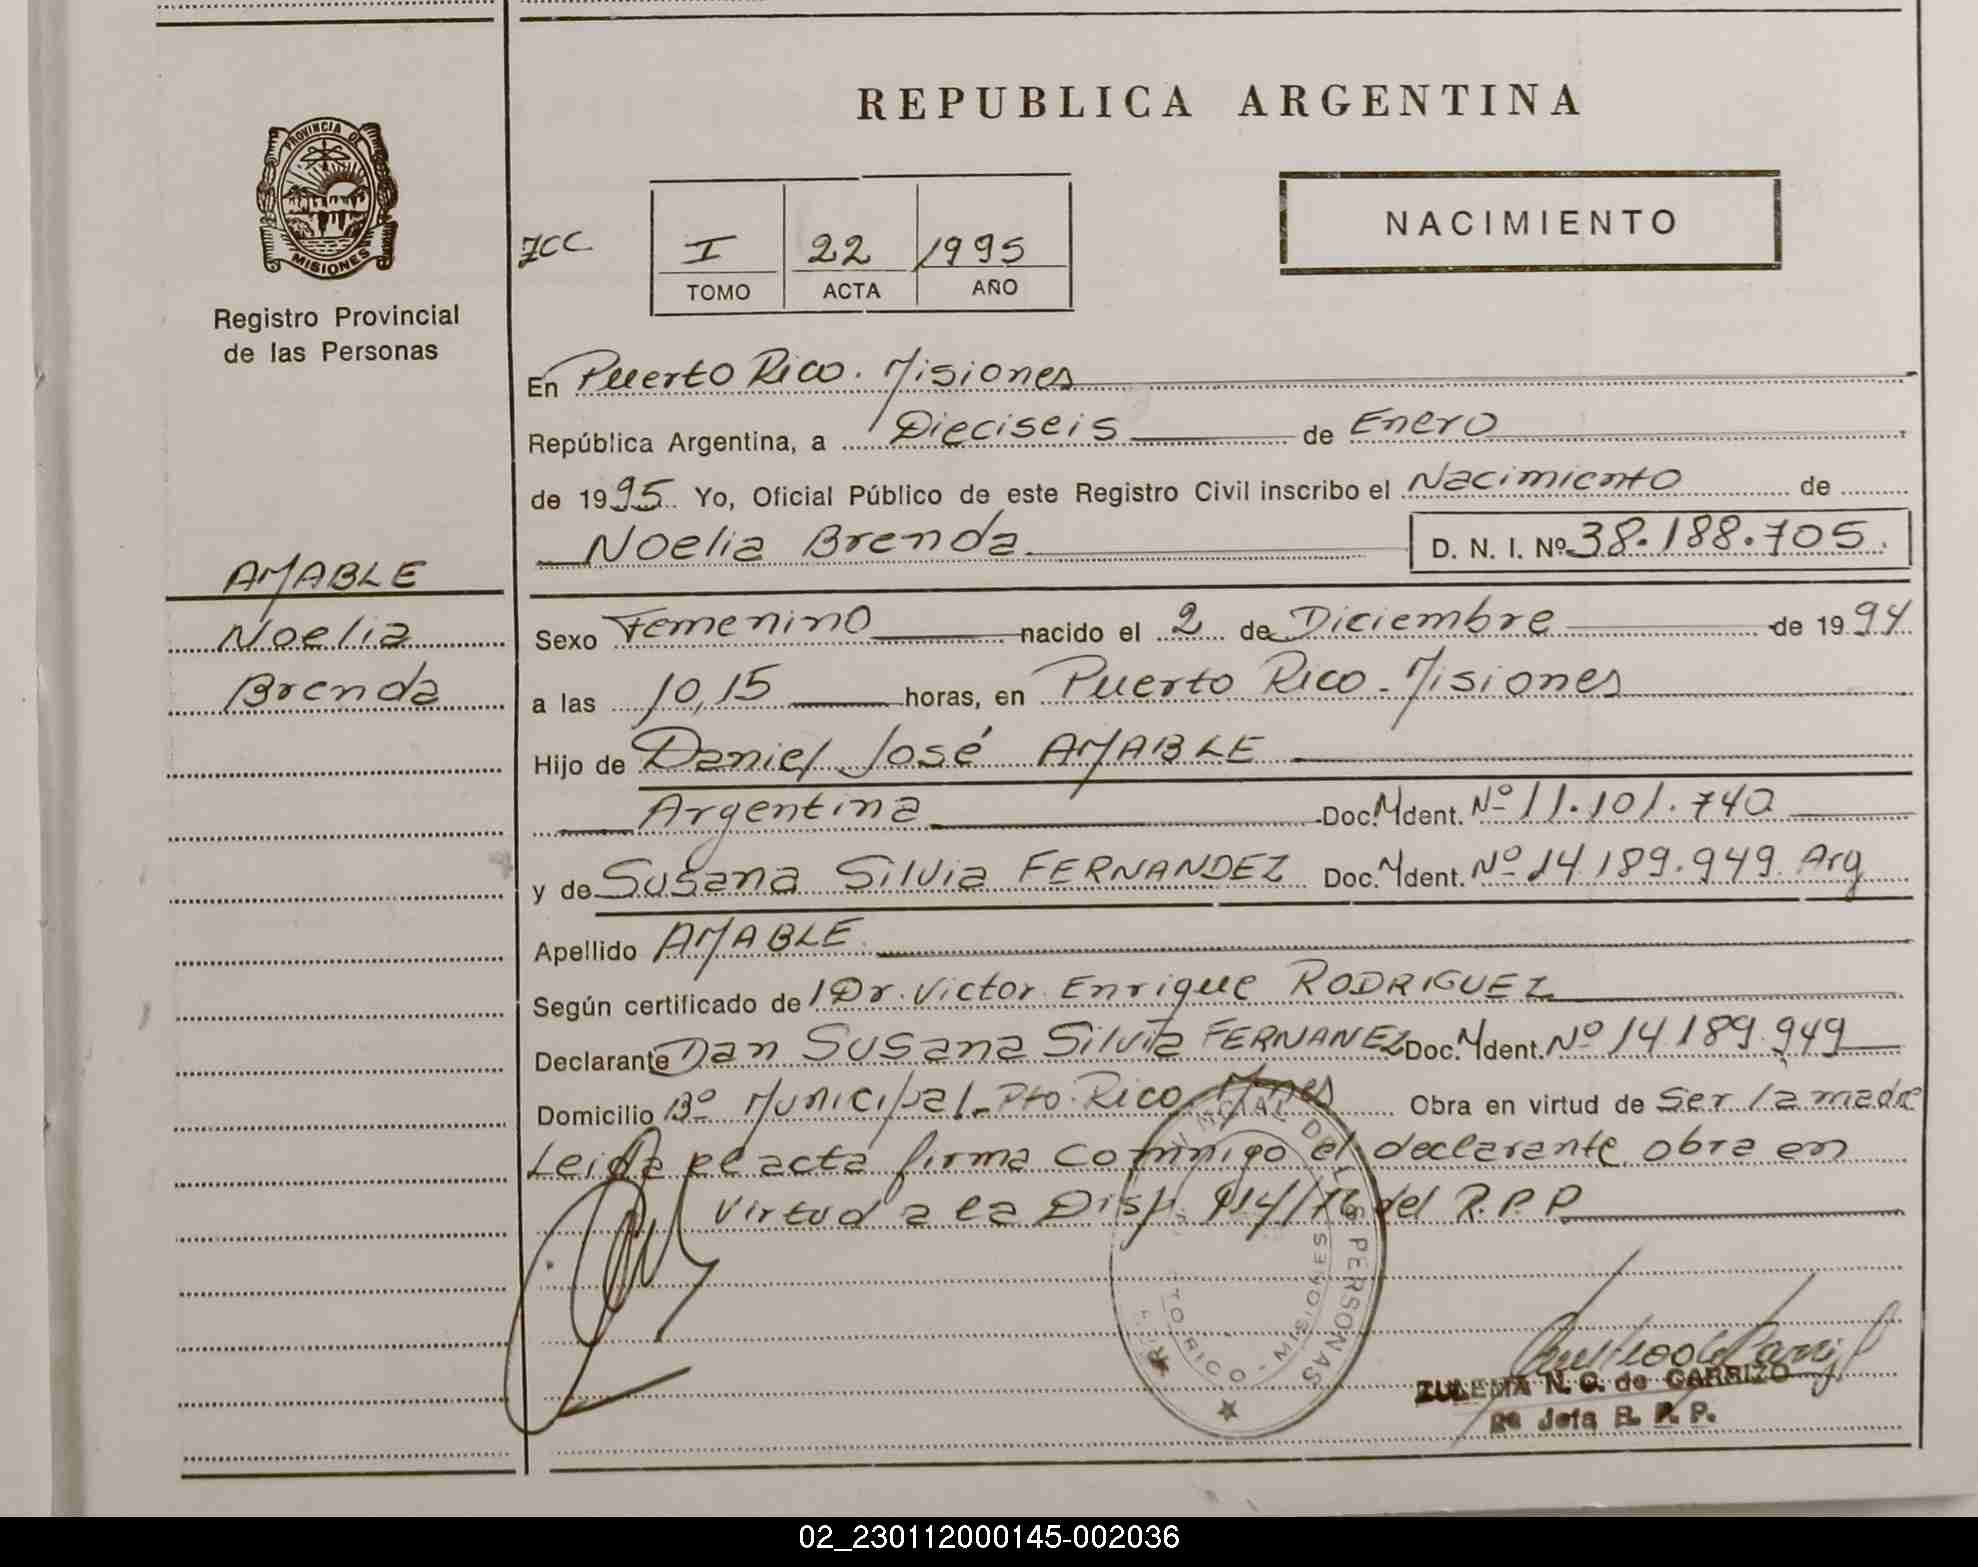 PROVINCIA DE
MISIONES
Registro Provincial
de las Personas
AMABLE
Noelia
Brenda
REPUBLICA ARGENTINA
NACIMIENTO
I 22 1995
TOMO ACTA AÑO
En Puerto Rico. Misiones
República Argentina, a Dieciseis de Enero
de 1995 Yo, Oficial Público de este Registro Civil inscribo el Nacimiento de
Noelia Brenda D. N. I. Nº 38.188.705.
Sexo Femenino nacido el 2 de Diciembre de 1994
a las 10,15 horas, en Puerto Rico - Misiones
Hijo de Daniel José AMABLE
Argentina Doc. Ident. Nº 11.101.740
y de Susana Silvia FERNANDEZ Doc. Ident. Nº 14.189.949. Arg
Apellido AMABLE
Según certificado de Dr. Victor Enrique RODRIGUEZ
Declarante Dan Susana Silvia FERNANEZ Doc. Ident. Nº 14.189.949
Domicilio Bº Municipal - Pto. Rico Mnes Obra en virtud de Ser la madre
Leida el acta firma commigo el declarante obra en
Virtud a la Disp. 914/76 del R.P.P.
PERSONAS
TO RICO - MISIONES
ZULEMA N. G. de CARRIZO
Jefa R. P. P.
02_230112000145-002036